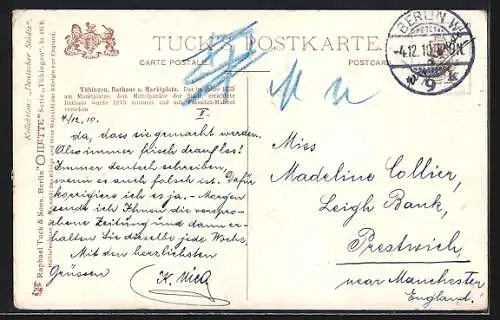 Kollektion: „Deutscher Städte".
Raphael Tuck & Sons, Berlin "OILETTE" Serie „Tübingen" No.
TUCK'S POSTKARTE.
CARTE POSTALE
POSTCARD
BERLIN W
-4.12.10
9 k
Tübingen. Rathaus u. Marktplatz. Das im Jahre 1435
am Marktplatze, dem Mittelpunkte der Stadt errichtete
Rathaus wurde 1876 renoviert und mit Fassaden-Malerei
versehen.
4/12.10. I.
da, dass sie gemacht werden.
Also immer frisch drauflos!
Immer deutsch schreiben,
wenn es auch falsch ist. Dafür
korrigiere ich es ja. – Morgen
sende ich Ihnen die verspro-
chene Zeitung und dann er-
halten Sie dieselbe jede Woche.
Mit den herzlichsten
Grüssen
Miss
Madeline Collier,
Leigh Bank,
Prestwich,
near Manchester
England.